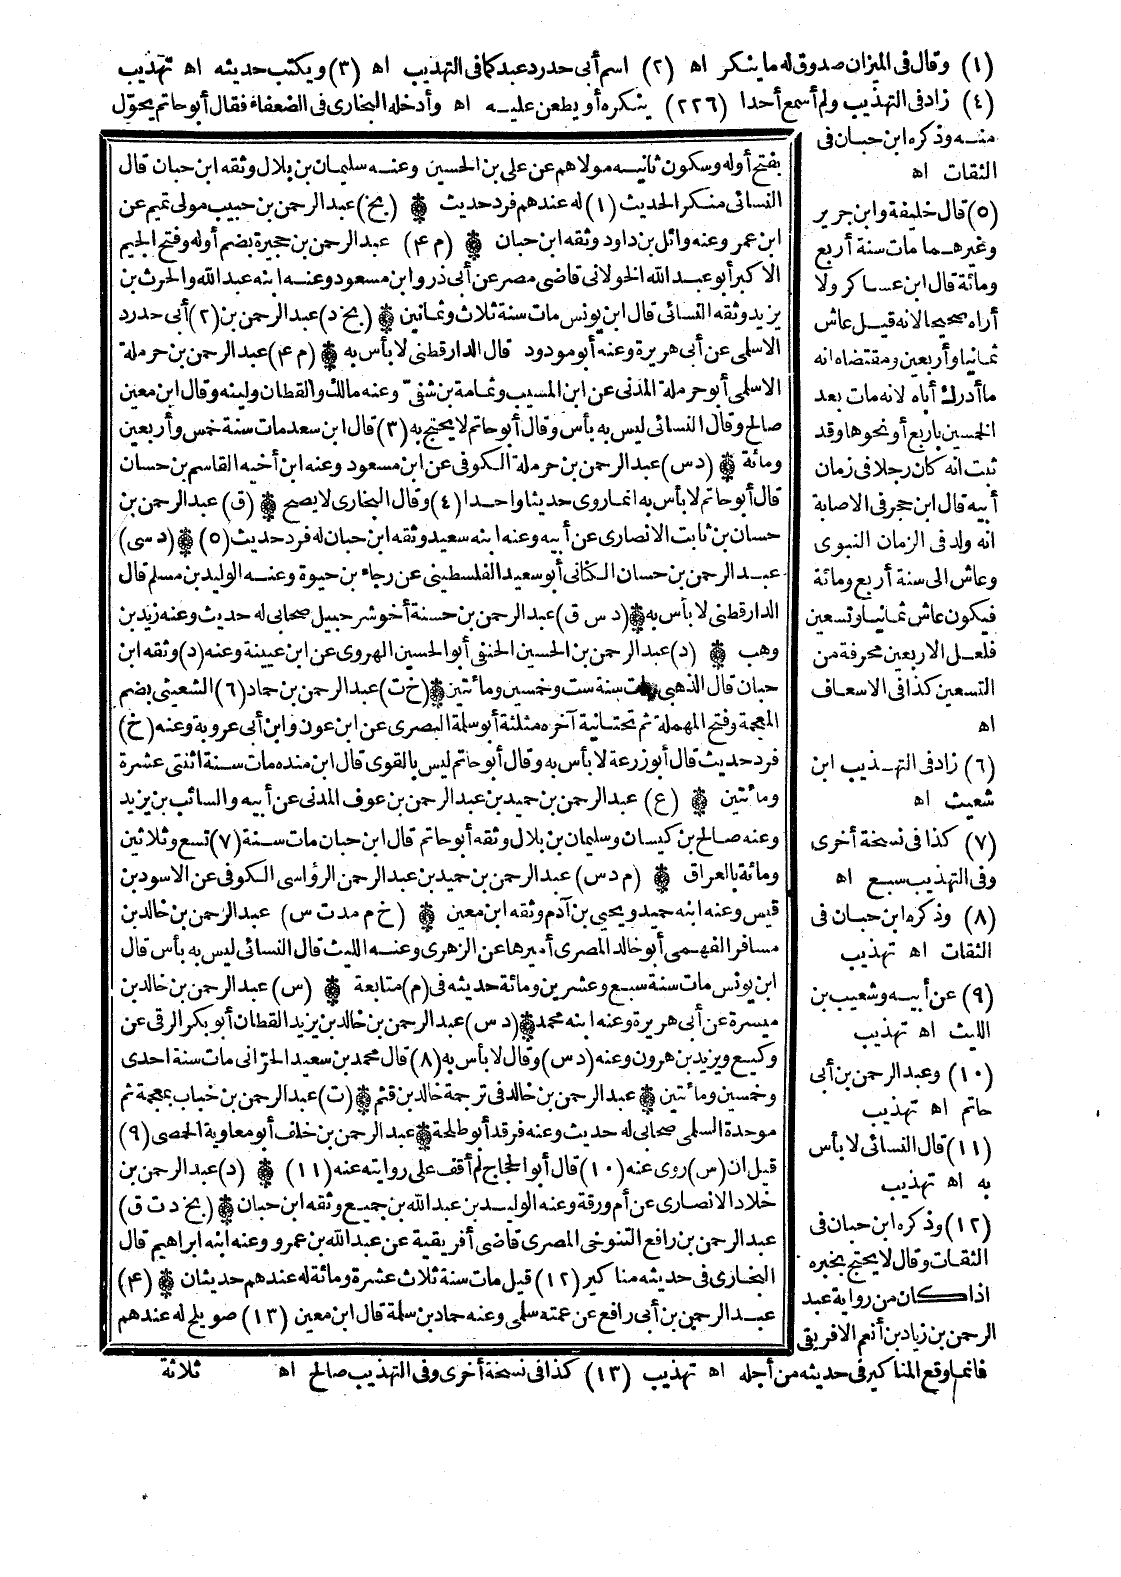 (١) وقال فى الميزان صدوق له ما ينكر اه (٢) اسم أبى حدرد عبد كما فى التهذيب اه (٣) ويكتب حديثه اه تهذيب
(٤) زاد فى التهذيب ولم أسمع أحدا (٢٢٦) ينكره أو يطعن عليه اه وأدخله البخارى فى الضعفاء فقال أبو حاتم يحوّل
منه وذكره ابن حبان فى
الثقات اه
(٥) قال خليفة وابن جرير
وغيرهما مات سنة أربع
ومائة قال ابن عساكر ولا
أراه صحيحا لانه قيل عاش
ثمانيا وأربعين ومقتضاه انه
ما أدرك أباه لانه مات بعد
الخمسين بأربع أو نحوها وقد
ثبت انه كان رجلا فى زمان
أبيه قال ابن حجر فى الاصابة
انه ولد فى الزمان النبوى
وعاش الى سنة أربع ومائة
فيكون عاش ثمانيا وتسعين
فلعل الاربعين محرفة من
التسعين كذا فى الاسعاف
اه
(٦) زاد فى التهذيب ابن
شعيث اه
(٧) كذا فى نسخة أخرى
وفى التهذيب سبع اه
(٨) وذكره ابن حبان فى
الثقات اه تهذيب
(٩) عن أبيه وشعيب بن
الليث اه تهذيب
(١٠) وعبد الرحمن بن أبى
حاتم اه تهذيب
(١١) قال النسائى لا بأس
به اه تهذيب
(١٢) وذكره ابن حبان فى
الثقات وقال لا يحتج بخبره
اذا كان من رواية عبد
الرحمن بن زياد بن أنعم الافريقى
فانما وقع المناكير فى حديثه من أجله اه تهذيب (١٣) كذا فى نسخة أخرى وفى التهذيب صالح اه ثلاثة
بفتح أوله وسكون ثانيه مولاهم عن على بن الحسين وعنه سليمان بن بلال وثقه ابن حبان قال
النسائى منكر الحديث (١) له عندهم فرد حديث ۞ (بخ) عبد الرحمن بن حبيب مولى تميم عن
ابن عمر وعنه وائل بن داود وثقه ابن حبان ۞ (م ٤) عبد الرحمن بن حجيرة بضم أوله وفتح الجيم
الاكبر أبو عبد الله الخولانى قاضى مصر عن أبى ذر وابن مسعود وعنه ابنه عبد الله والحرث بن
يزيد وثقه النسائى قال ابن يونس مات سنة ثلاث وثمانين ۞ (بخ د) عبد الرحمن بن (٢) أبى حدرد
الاسلمى عن أبى هريرة وعنه أبو مودود قال الدارقطنى لا بأس به ۞ (م ٤) عبد الرحمن بن حرملة
الاسلمى أبو حرملة المدنى عن ابن المسيب وثمامة بن شفىّ وعنه مالك والقطان ولينه وقال ابن معين
صالح وقال النسائى ليس به بأس وقال أبو حاتم لا يحتج به (٣) قال ابن سعد مات سنة خمس وأربعين
ومائة ۞ (د س) عبد الرحمن بن حرملة الكوفى عن ابن مسعود وعنه ابن أخيه القاسم بن حسان
قال أبو حاتم لا بأس به انما روى حديثا واحدا (٤) وقال البخارى لا يصح ۞ (ق) عبد الرحمن بن
حسان بن ثابت الانصارى عن أبيه وعنه ابنه سعيد وثقه ابن حبان له فرد حديث (٥) ۞ (د سى)
عبد الرحمن بن حسان الكنانى أبو سعيد الفلسطينى عن رجاء بن حيوة وعنه الوليد بن مسلم قال
الدارقطنى لا بأس به ۞ (د س ق) عبد الرحمن بن حسنة أخو شرحبيل صحابى له حديث وعنه زيد بن
وهب ۞ (د) عبد الرحمن بن الحسين الحنفى أبو الحسين الهروى عن ابن عيينة وعنه (د) وثقه ابن
حبان قال الذهبى مات سنة ست وخمسين ومائتين ۞ (خ ت) عبد الرحمن بن حماد (٦) الشعيثى بضم
المعجمة وفتح المهملة ثم تحتانية آخره مثلثة أبو سلمة البصرى عن ابن عون وابن أبى عروبة وعنه (خ)
فرد حديث قال أبو زرعة لا بأس به وقال أبو حاتم ليس بالقوى قال ابن منده مات سنة اثنتى عشرة
ومائتين ۞ (ع) عبد الرحمن بن حميد بن عبد الرحمن بن عوف المدنى عن أبيه والسائب بن يزيد
وعنه صالح بن كيسان وسليمان بن بلال وثقه أبو حاتم قال ابن حبان مات سنة (٧) تسع وثلاثين
ومائة بالعراق ۞ (م د س) عبد الرحمن بن حميد بن عبد الرحمن الرؤاسى الكوفى عن الاسود بن
قيس وعنه ابنه حميد ويحيى بن آدم وثقه ابن معين ۞ (خ م مد ت س) عبد الرحمن بن خالد بن
مسافر الفهمى أبو خالد المصرى أميرها عن الزهرى وعنه الليث قال النسائى ليس به بأس قال
ابن يونس مات سنة سبع وعشرين ومائة حديثه فى (م) متابعة ۞ (س) عبد الرحمن بن خالد بن
ميسرة عن أبى هريرة وعنه ابنه محمد ۞ (د س) عبد الرحمن بن خالد بن يزيد القطان أبو بكر الرقى عن
وكيع ويزيد بن هرون وعنه (د س) وقال لا بأس به (٨) قال محمد بن سعيد الحرّانى مات سنة احدى
وخمسين ومائتين ۞ عبد الرحمن بن خالد فى ترجمة خالد بن قثم ۞ (ت) عبد الرحمن بن خباب بمعجمة ثم
موحدة السلمى صحابى له حديث وعنه فرقد أبو طلحة ۞ عبد الرحمن بن خلف أبو معاوية الحمصى (٩)
قيل ان (س) روى عنه (١٠) قال أبو الحجاج لم أقف على روايته عنه (١١) ۞ (د) عبد الرحمن بن
خلاد الانصارى عن أم ورقة وعنه الوليد بن عبد الله بن جميع وثقه ابن حبان ۞ (بخ د ت ق)
عبد الرحمن بن رافع التنوخى المصرى قاضى أفريقية عن عبد الله بن عمرو وعنه ابنه ابراهيم قال
البخارى فى حديثه مناكير (١٢) قيل مات سنة ثلاث عشرة ومائة له عندهم حديثان ۞ (٤)
عبد الرحمن بن أبى رافع عن عمته سلمى وعنه حماد بن سلمة قال ابن معين (١٣) صويلح له عندهم